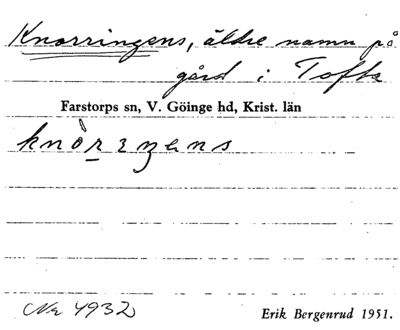 Knorringens, äldre namn på
gård i Tofta
Farstorps sn, V. Göinge hd, Krist. län
Nr 4932
Erik Bergenrud 1951.